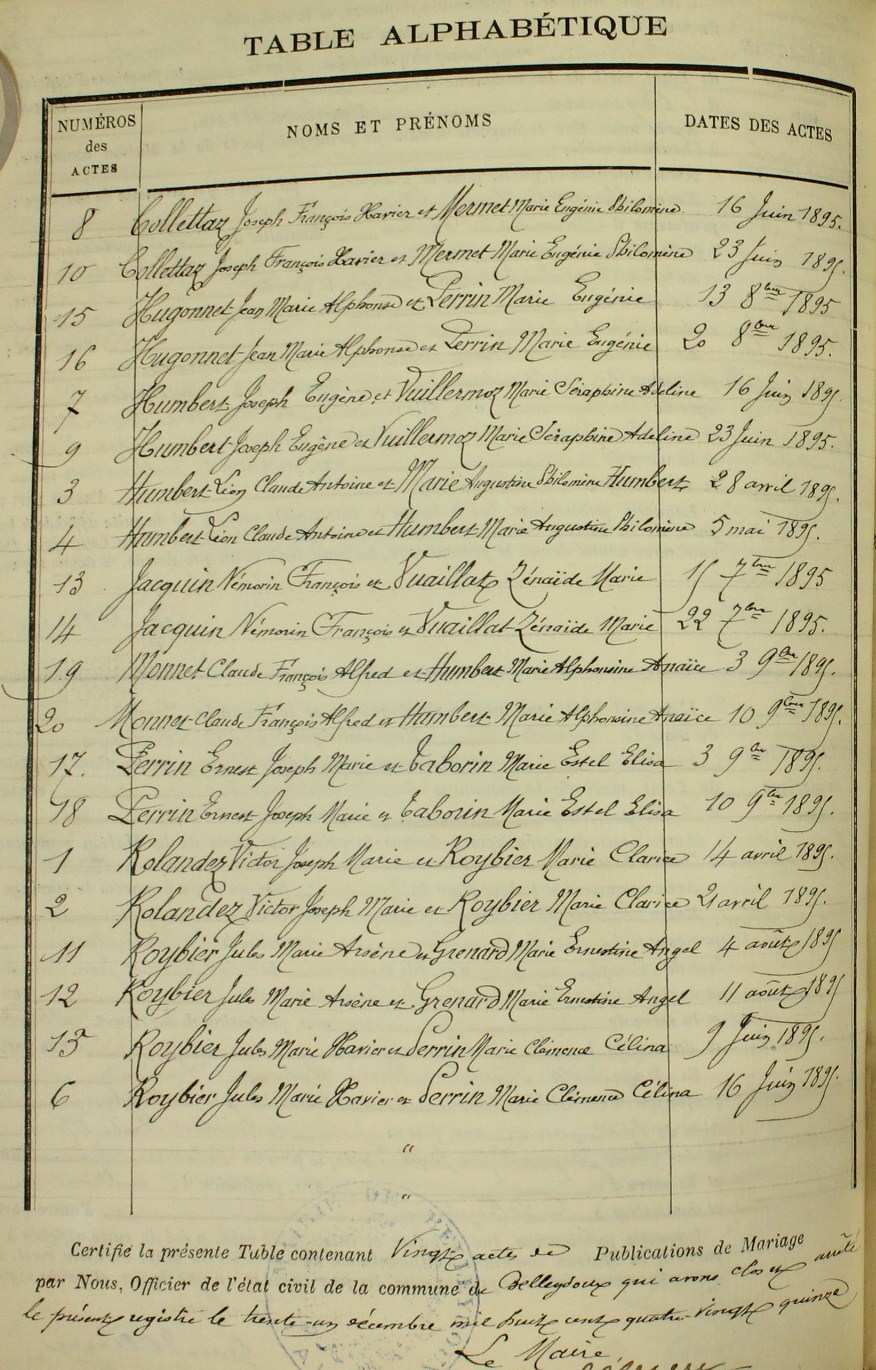 TABLE ALPHABÉTIQUE
NUMÉROS des ACTES NOMS ET PRÉNOMS DATES DES ACTES
8 Collettaz Joseph François Xavier et Mermet Marie Eugénie Philomène 16 Juin 1895.
10 Collettaz Joseph François Xavier et Mermet Marie Eugénie Philomène 23 Juin 1895.
15 Hugonnet Jean Marie Alphonse et Perrin Marie Eugénie 13 8bre 1895
16 Hugonnet Jean Marie Alphonse et Perrin Marie Eugénie 20 8bre 1895.
7 Humbert Joseph Eugène et Vuillermoz Marie Séraphine Adeline 16 Juin 1895.
9 Humbert Joseph Eugène et Vuillermoz Marie Séraphine Adeline 23 Juin 1895.
3 Humbert Léon Claude Antoine et Marie Augustine Philomène Humbert 28 avril 1895.
4 Humbert Léon Claude Antoine et Humbert Marie Augustine Philomène 5 mai 1895.
13 Jacquin Némorin François et Vuaillat Zénaïde Marie 15 7bre 1895
14 Jacquin Némorin François et Vuaillat Zénaïde Marie 22 7bre 1895.
19 Monnet Claude François Alfred et Humbert Marie Alphonsine Anaïce 3 9bre 1895.
20 Monnet Claude François Alfred et Humbert Marie Alphonsine Anaïce 10 9bre 1895.
17. Perrin Ernest Joseph Marie et Taborin Marie Estel Elisa 3 9bre 1895.
18 Perrin Ernest Joseph Marie et Taborin Marie Estel Elisa 10 9bre 1895.
1 Rolandez Victor Joseph Marie et Roybier Marie Clarice 14 avril 1895.
2 Rolandez Victor Joseph Marie et Roybier Marie Clarice 21 avril 1895.
11 Roybier Jules Marie Arsène et Grenard Marie Ernestine Angel 4 août 1895
12 Roybier Jules Marie Arsène et Grenard Marie Ernestine Angel 11 août 1895
Roybier Jules Marie Xavier et Perrin Marie Clémence Célina 9 Juin 1895.
6 Roybier Jules Marie Xavier et Perrin Marie Clémence Célina 16 Juin 1895.
"
"
Certifié la présente Table contenant Vingt actes de Publications de Mariage
par Nous, Officier de l'état civil de la commune de Belleydoux qui avons clos et arrêté
le présent registre le trente-un décembre mil huit cent quatre-vingt quinze
Le Maire